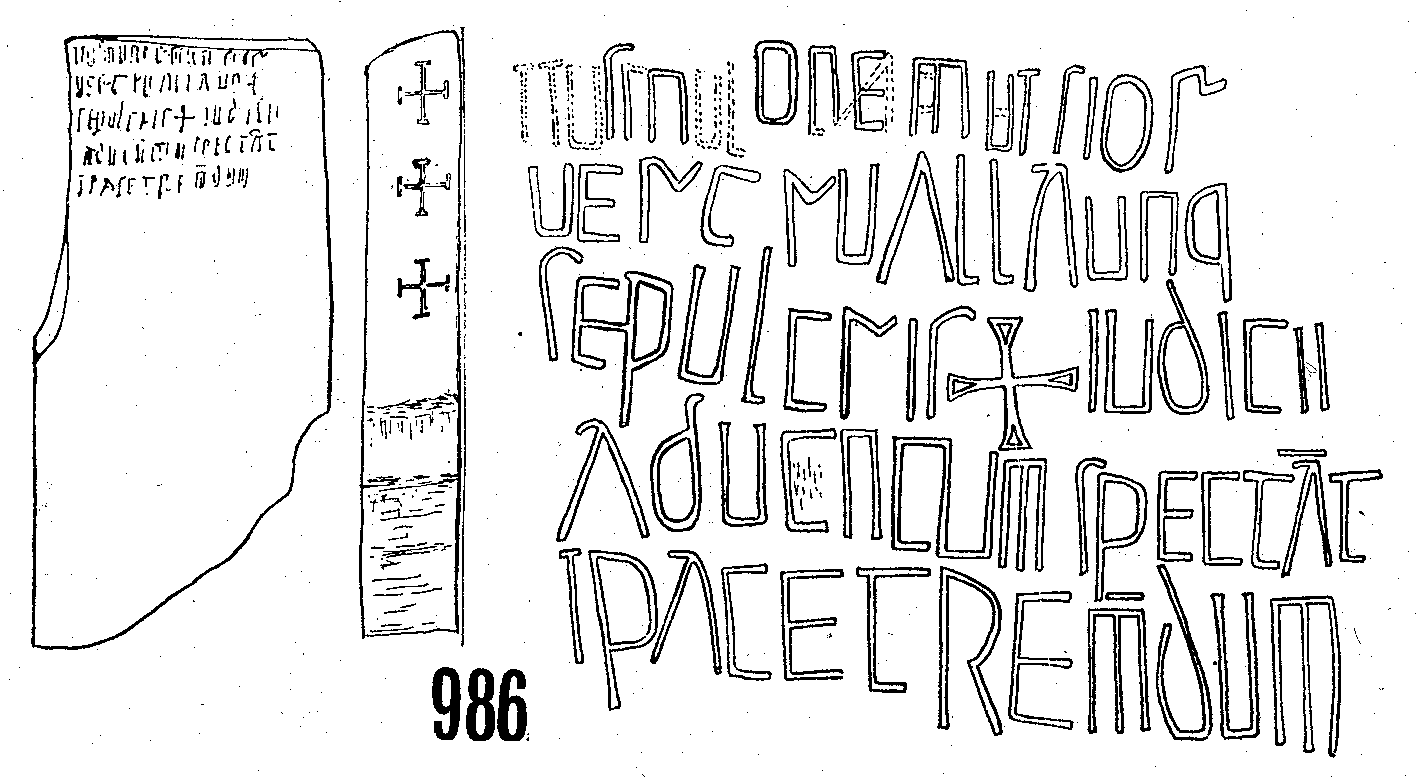 ONE MUTI IOR
UERT RUALLAUNQ
SEPULCRIS + IUDICII
ADUENTUM SPECTĀT
IPACE TREM̄DUM
986